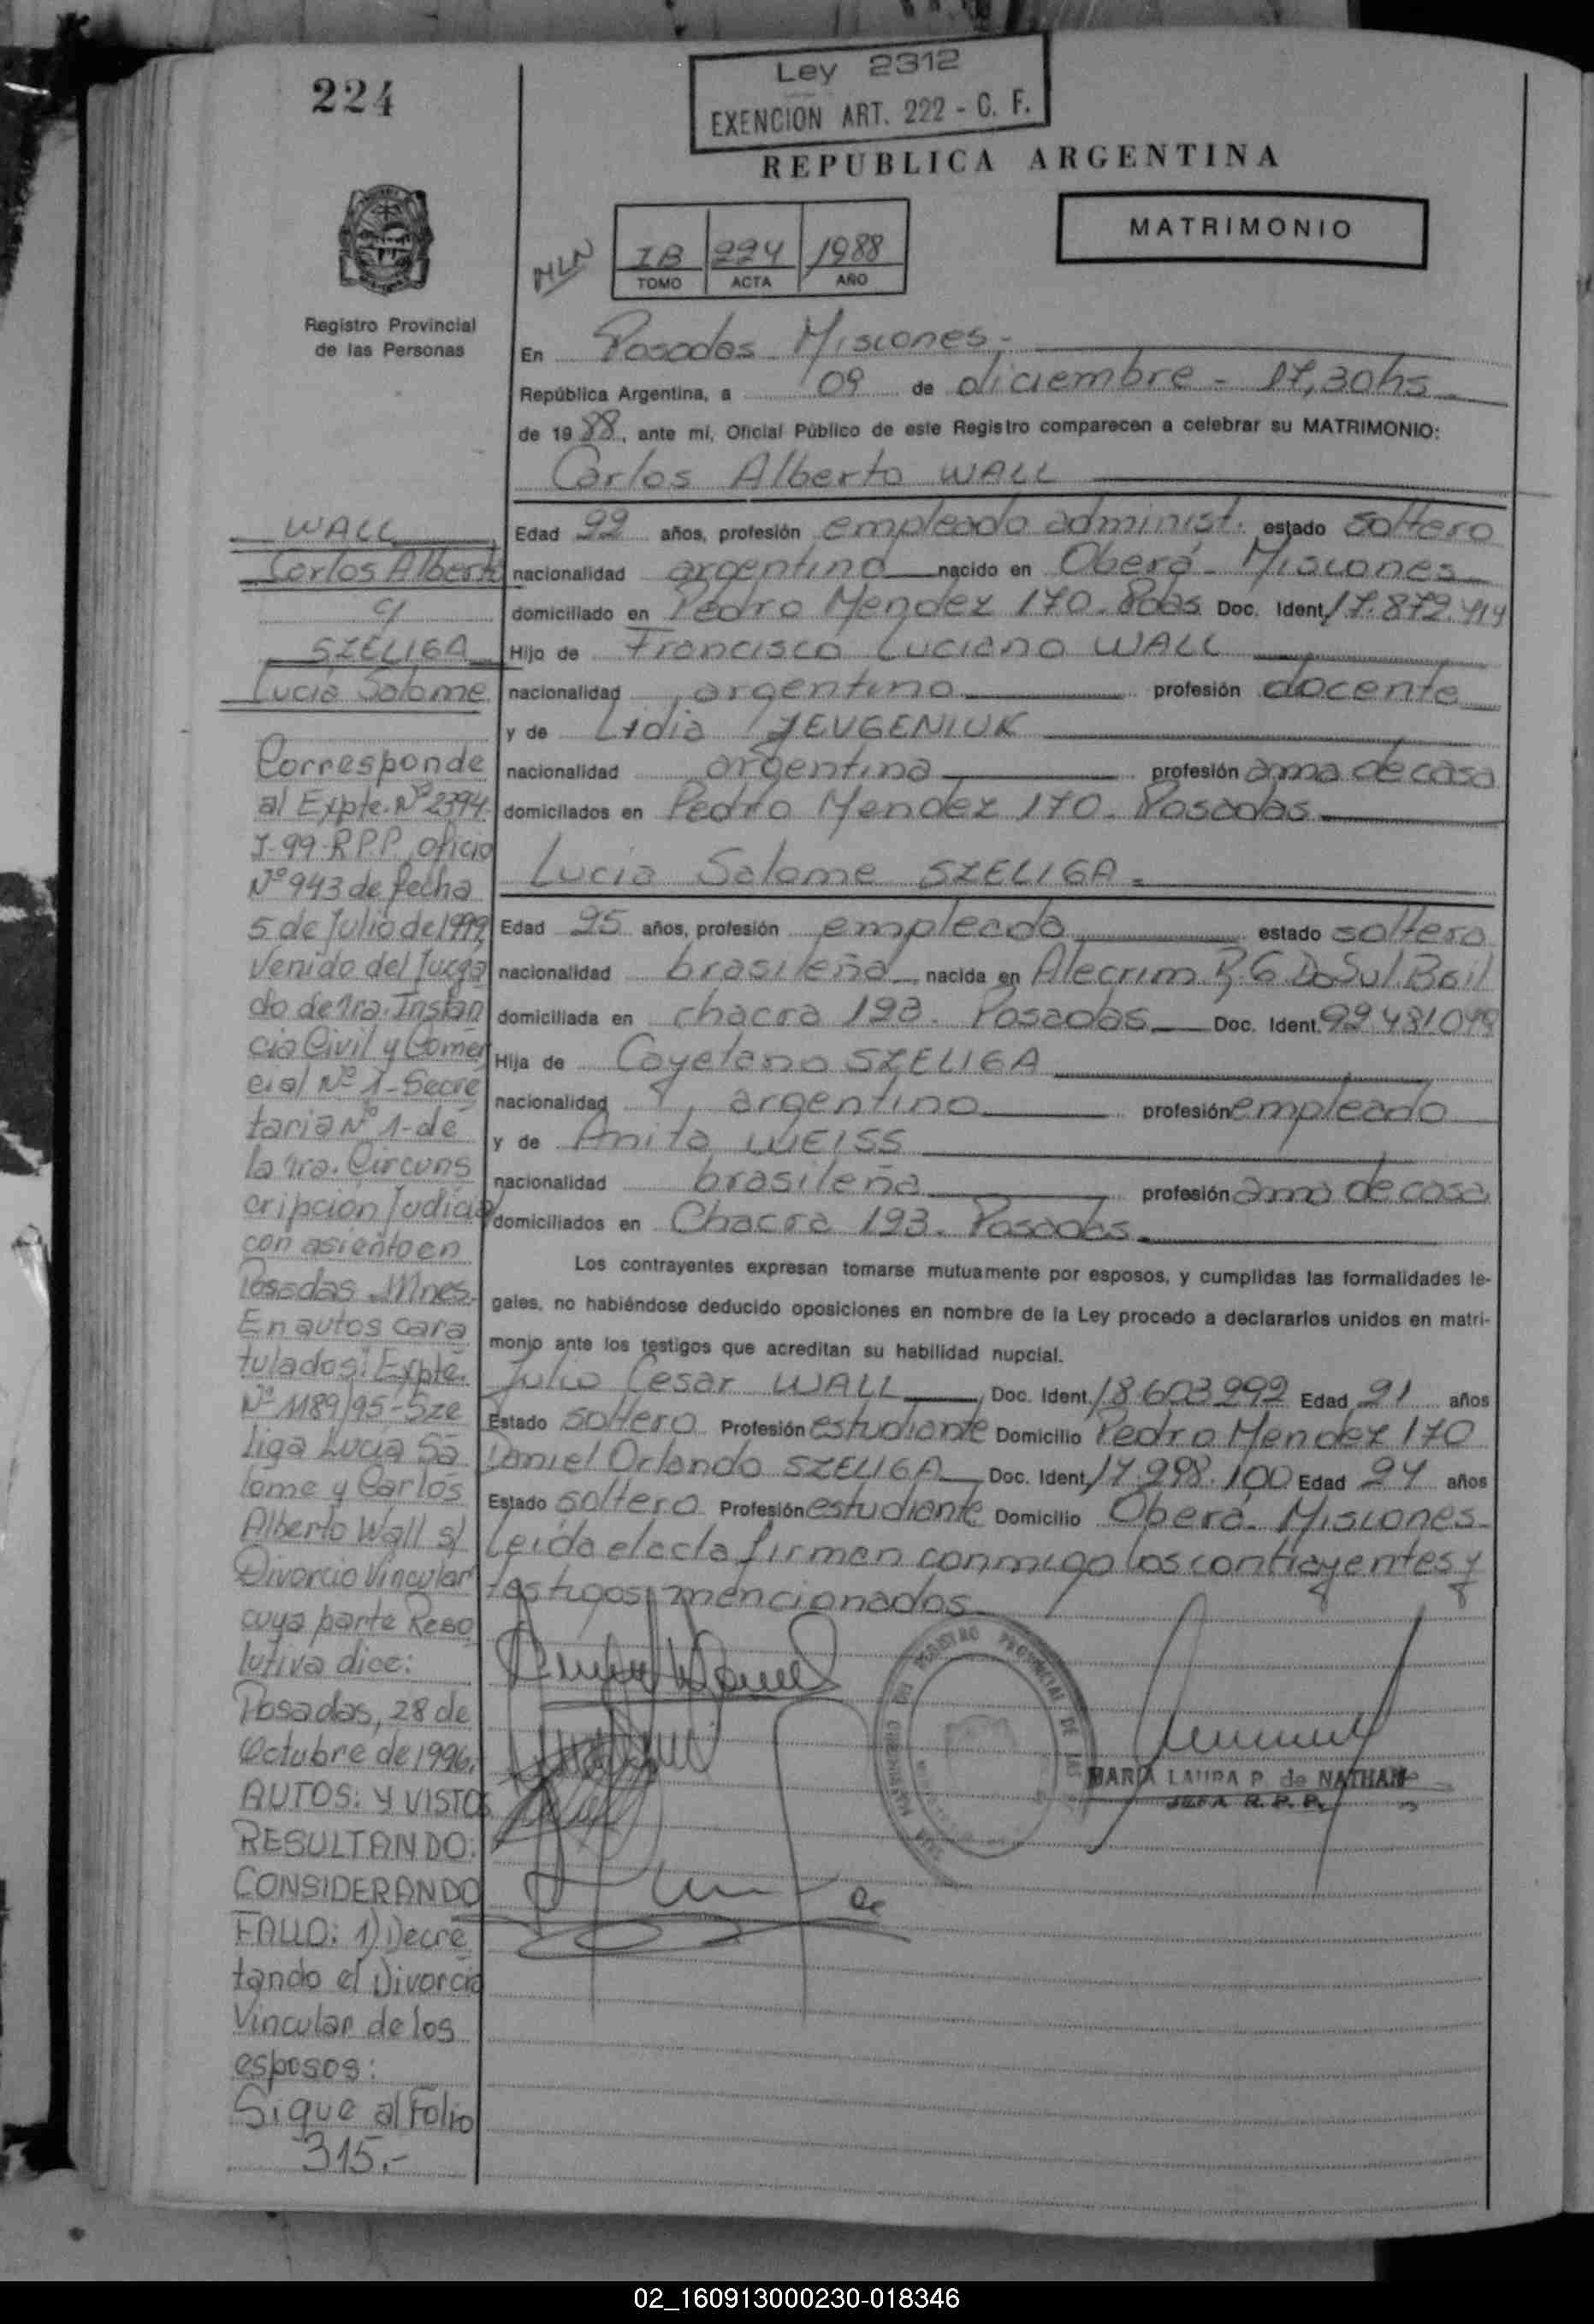 224
Ley 2312
EXENCION ART. 222 - C. F.
REPUBLICA ARGENTINA
MATRIMONIO
224 1988
TOMO ACTA AÑO
Registro Provincial
de las Personas
En Posadas Misiones.-
República Argentina, a 09 de diciembre - 17,30hs
de 1988, ante mí, Oficial Público de este Registro comparecen a celebrar su MATRIMONIO:
Carlos Alberto WALL
Edad 22 años, profesión empleado administ. estado soltero
nacionalidad argentino nacido en Oberá - Misiones
domiciliado en Pedro Mendez 170. Pdas Doc. Ident. 17.872.414
Hijo de Francisco Luciano WALL
nacionalidad argentino profesión docente
y de Lydia JEVGENIUK
nacionalidad argentina profesión ama de casa
domicilados en Pedro Mendez 170. Posadas
Lucia Salome SZELIGA -
Edad 25 años, profesión empleada estado soltera
nacionalidad brasileña nacida en Alecrim R.G.DoSul.
domiciliada en chacra 193. Posadas Doc. Ident.
Hija de Cayetano SZELIGA
nacionalidad argentino profesión empleado
y de Anita WEISS
nacionalidad brasileña profesión ama de casa
domiciliados en Chacra 193. Posadas.
Los contrayentes expresan tomarse mutuamente por esposos, y cumplidas las formalidades le-
gales, no habiéndose deducido oposiciones en nombre de la Ley procedo a declararlos unidos en matri-
monio ante los testigos que acreditan su habilidad nupcial.
Julio Cesar WALL Doc. Ident. 18.603.292 Edad 21 años
Estado soltero Profesión estudiante Domicilio Pedro Mendez 170
Daniel Orlando SZELIGA Doc. Ident. 17.998.100 Edad 24 años
Estado soltero Profesión estudiante Domicilio Oberá - Misiones-
Leida el acta firman conmigo los contrayentes y
testigos mencionados.
MARIA LAURA P. de NATHAN
JEFA R. P. P.
WALL
Carlos Alberto
c/
SZELIGA
Lucia Salome
Corresponde
al Expte. Nº 2394
J-99-R.P.P. oficio
Nº 943 de fecha
5 de Julio de 1999
Venido del Juzga
do de 1ra. Instan
cia Civil y Comer
cial Nº 1-Secre
taria Nº 1-de
la 1ra. Circuns
cripcion Judicial
con asiento en
Posadas Mnes.
En autos cara
tulados: Expte.
Nº 1189/95-Sze
liga Lucia Sa
lome y Carlos
Alberto Wall s/
Divorcio Vincular
cuya parte Reso
lutiva dice:
Posadas, 28 de
Octubre de 1996,
AUTOS: Y VISTOS
RESULTANDO:
CONSIDERANDO
FALLO: 1) Decre
tando el Divorcio
Vincular de los
esposos:
Sigue al Folio
315.-
02_160913000230-018346